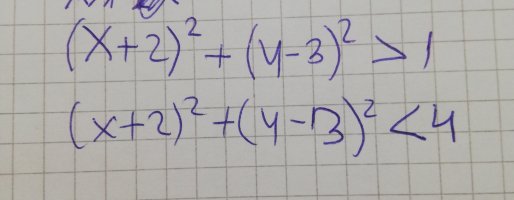 (x+2)² + (y-3)² > 1
(x+2)² + (y-3)² < 4